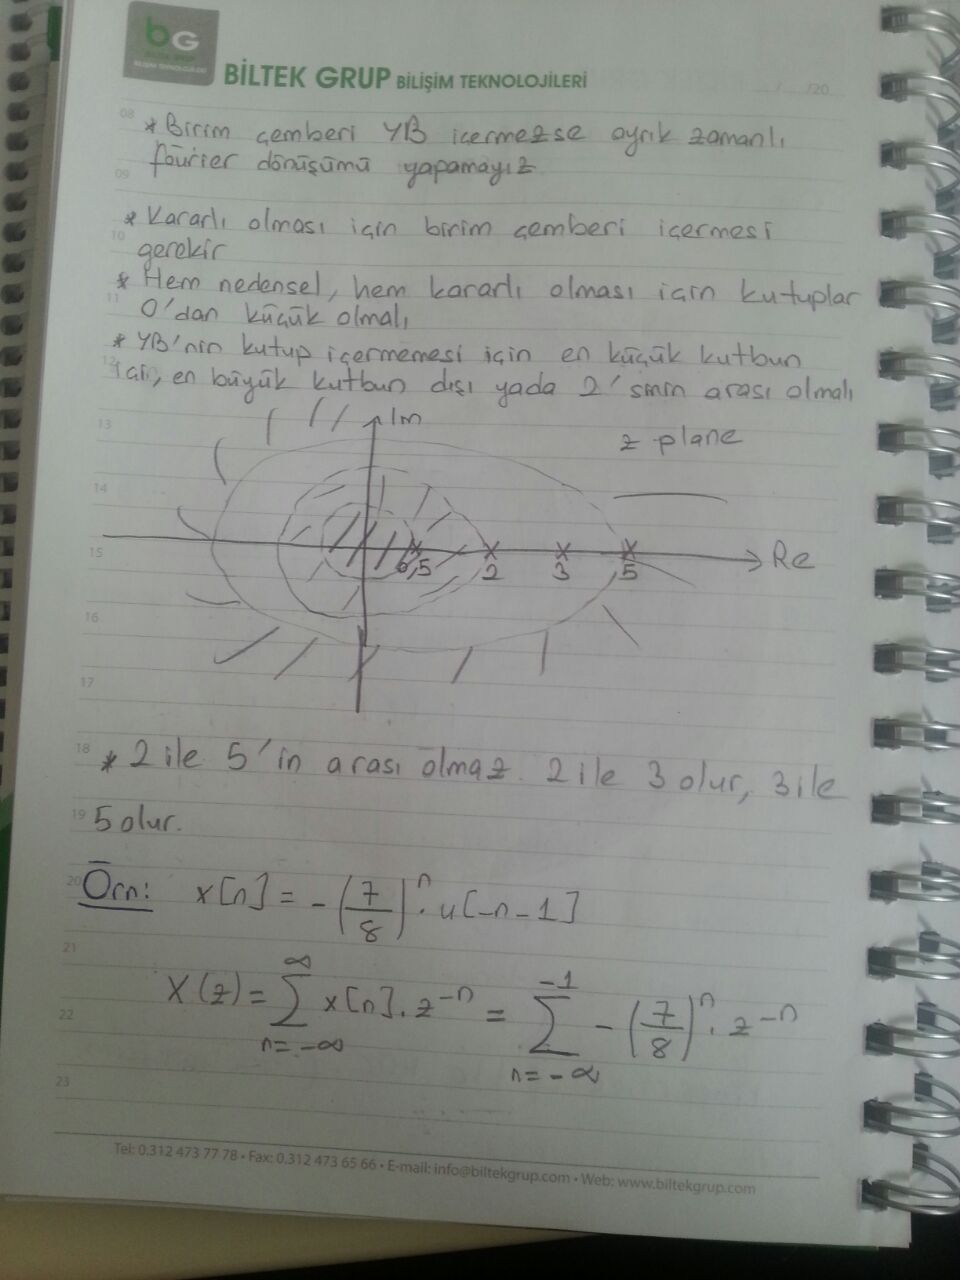 bG
BİLTEK GRUP
BİLİŞİM TEKNOLOJİLERİ
BİLTEK GRUP BİLİŞİM TEKNOLOJİLERİ
/ /20
08 * Birim çemberi YB içermezse ayrık zamanlı
fourier dönüşümü yapamayız.
09
* Kararlı olması için birim çemberi içermesi
10 gerekir
* Hem nedensel, hem kararlı olması için kutuplar
11 0'dan küçük olmalı
* YB'nin kutup içermemesi için en küçük kutbun
12 içi, en büyük kutbun dışı yada 2'sinin arası olmalı
13 Im
z plane
14
15 0,5 2 3 5 Re
16
17
18 * 2 ile 5'in arası olmaz. 2 ile 3 olur, 3 ile
19 5 olur.
20 Örn: x[n] = -(7/8)^n . u[-n-1]
21
X(z) = ∑_{n=-∞}^{∞} x[n] . z^{-n} = ∑_{n=-∞}^{-1} -(7/8)^n . z^{-n}
22
23
Tel: 0.312 473 77 78 • Fax: 0.312 473 65 66 • E-mail: info@biltekgrup.com • Web: www.biltekgrup.com